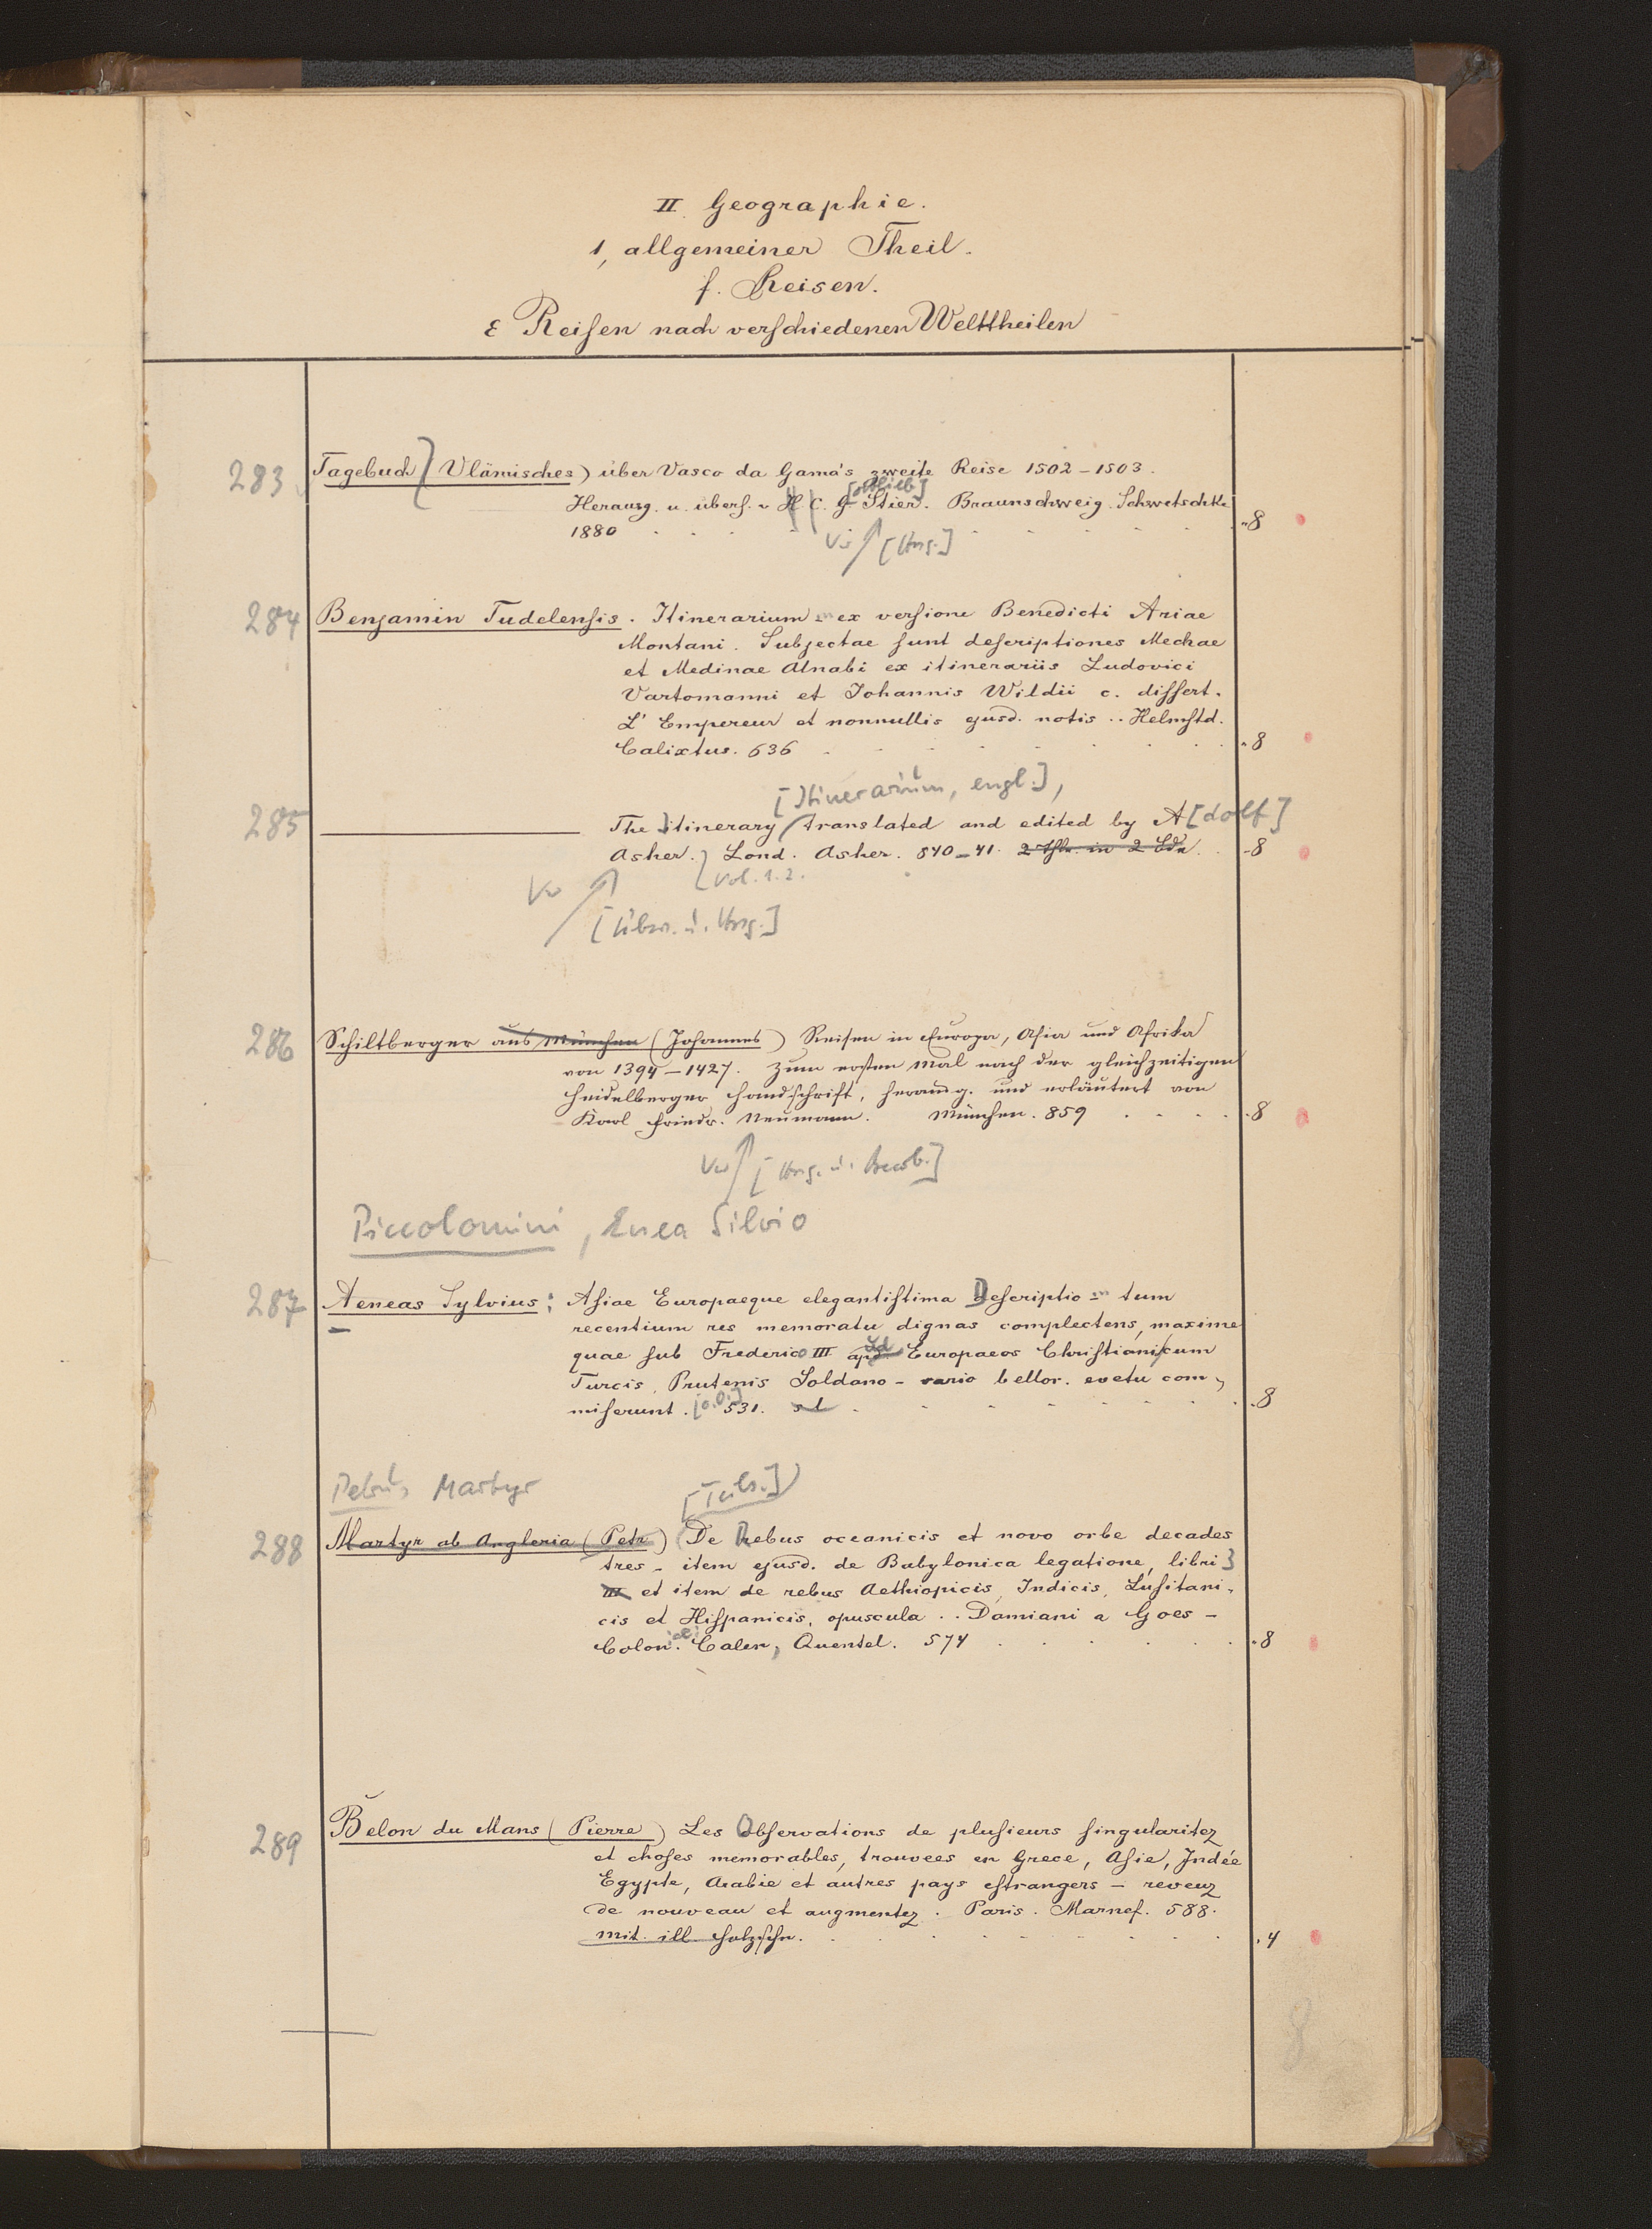 II. Geographie.
1, allgemeiner Theil.
f. Reisen.
ε Reisen nach verschiedenen Welttheilen
283 Tagebuch (Vlämisches) über Vasco da Gama's zweite Reise 1502–1503.
[ottlieb]
Herausg. u. übers. v H. C. G Stier. Braunschweig. Schwetschke
1880 . . . . 8
[Hrsg.]
284 Benjamin Tudelensis. Itinerarium ex versione Benedicti Ariae
Montani. Subjectae sunt descriptiones Mechae
et Medinae Alnabi ex itinerariis Ludovici
Vartomanni et Johannis Wildii c. dissert.
L'Empereur et nonnullis ejusd. notis .. Helmstd.
Calixtus. 636 . . . . 8
[Itinerarium, engl.],
285 The itinerary translated and edited by A[dolf]
Asher. Lond. Asher. 840–41. 2 Thle. in 2 Bdn. . 8
Vol. 1.2.
[Übers. u. Hrsg.]
286 Schiltberger aus München (Johannes) Reisen in Europa, Asia und Afrika
von 1394–1427. Zum ersten Mal nach der gleichzeitigen
Heidelberger Handschrift, herausg. und erläutert von
Karl Friedr. Neumann. München. 859 . . . . 8
[Hrsg. u. Bearb.]
Piccolomini, Enea Silvio
287 Aeneas Sylvius: Asiae Europaeque elegantissima Descriptio tum
recentium res memoratu dignas complectens, maxime
quae sub Frederico III apd Europaeos Christiani cum
Turcis, Prutenis Soldano – vario bellor. evetu com-
miserunt. [o.O.] 531. s l . . . . 8
Petrus Martyr [Teils.]
288 Martyr ab Angleria (Petr) De Rebus oceanicis et novo orbe decades
tres – item ejusd. de Babylonica legatione, libri 3
III et item de rebus Aethiopicis, Indicis, Lusitani-
cis et Hispanicis, opuscula .. Damiani a Goes –
Colon. Calen, Quentel. 574 . . . . 8
289 Belon du Mans (Pierre) Les Observations de plusieurs singularitez
et choses memorables, trouvees en Grece, Asie, Indée
Egypte, Arabie et autres pays estrangers – reveuz
de nouveau et augmentez. Paris. Marnef. 588.
mit. ill. Holzschn. . . . . 4
8